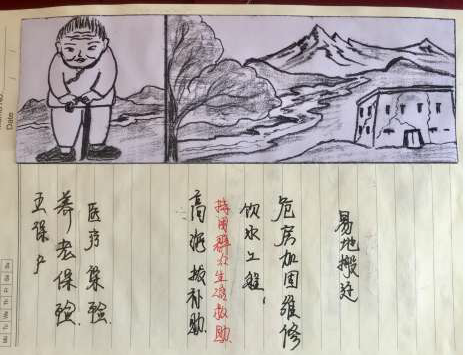 易地搬迁
危房加固维修
饮水工程、
特困群众生活救助
高海拔补助
医疗保险
养老保险
五保户
Date